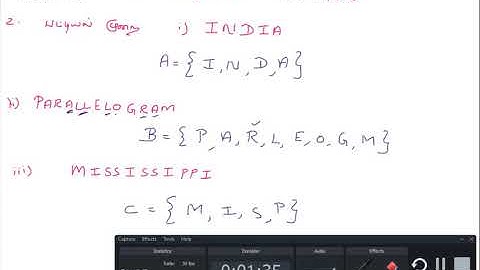 2. i) INDIA
A = { I, N, D, A }
ii) PARALLELOGRAM
B = { P, A, R, L, E, O, G, M }
iii) MISSISSIPPI
C = { M, I, S, P }
Capture Effects Tools Help
Statistics Duration Audio Effects
0:01:35